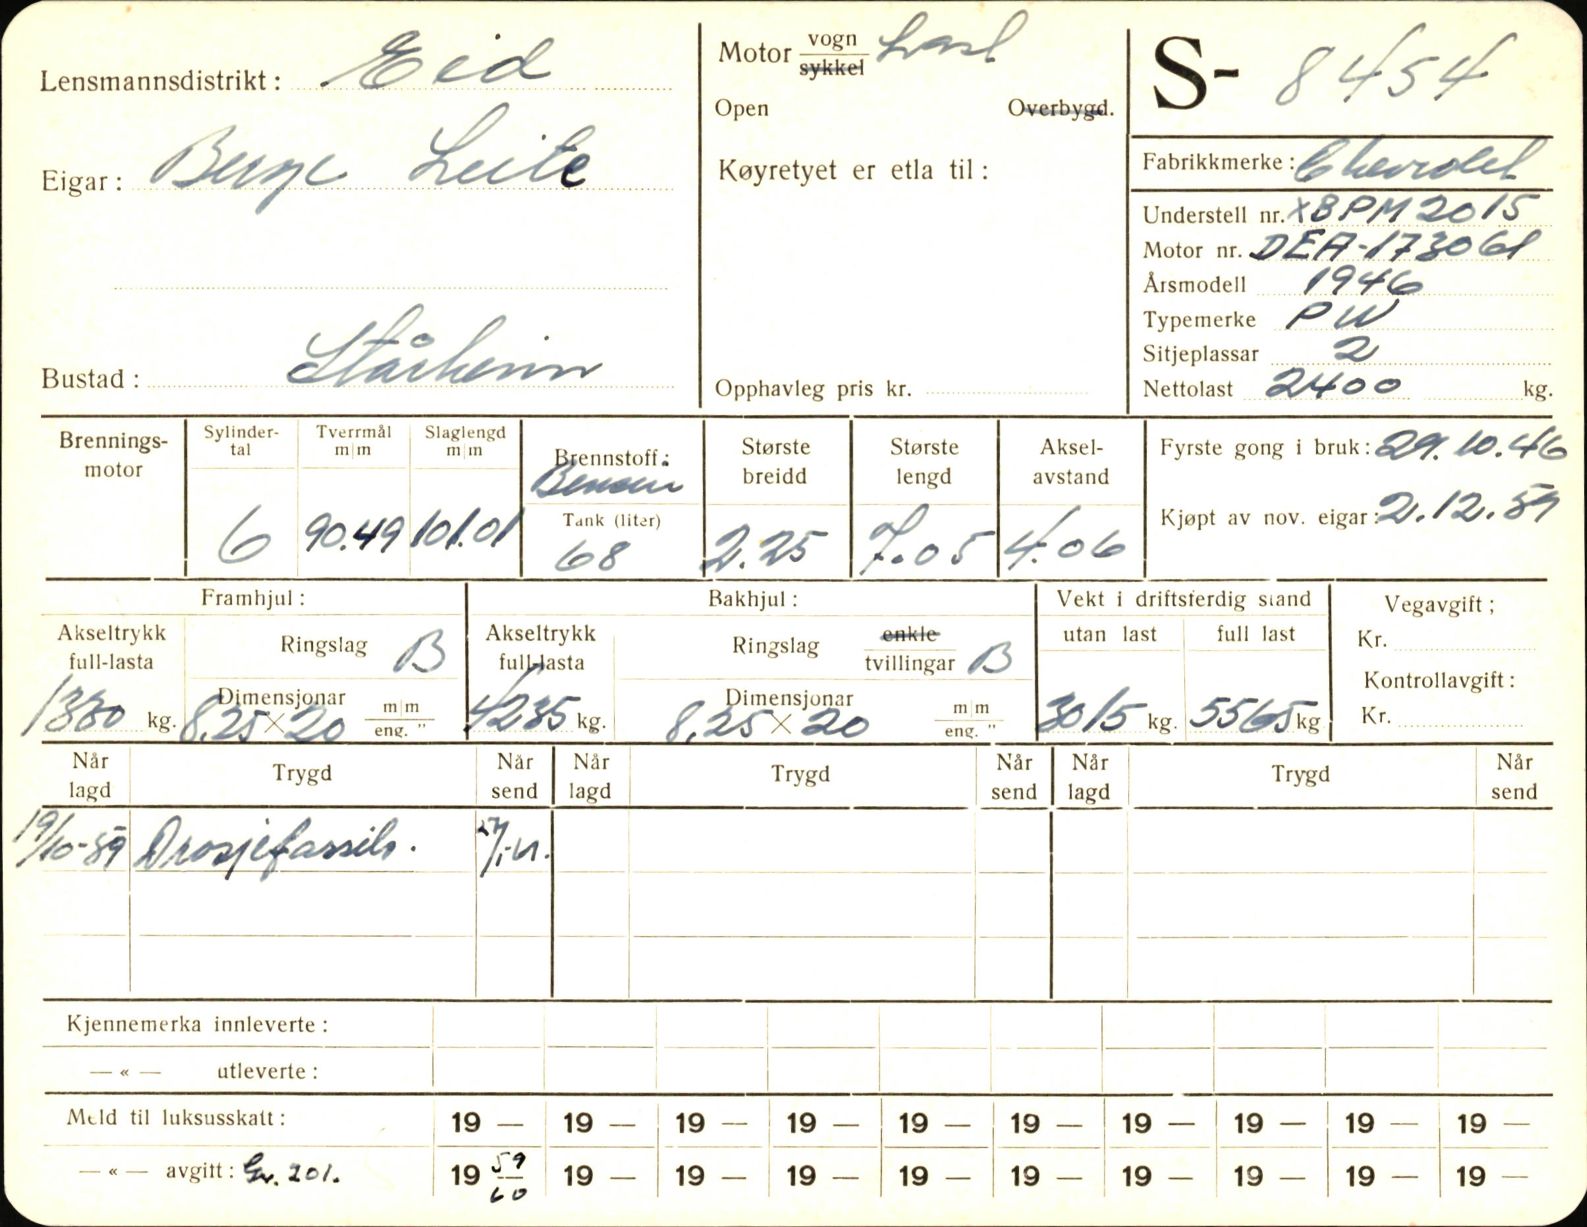 Lensmannsdistrikt: Eid
Eigar: Berge Leite
Bustad: Stårheim
Motor vogn Last
sykkel
Open Overbygd.
Køyretyet er etla til:
Opphavleg pris kr.
S- 8454
Fabrikkmerke: Chevrolet
Understell nr. XBPM2015
Motor nr. DEA-173061
Årsmodell 1946
Typemerke PW
Sitjeplassar 2
Nettolast 2400 kg.
Brennings-
motor
Sylinder-
tal
6
Tverrmål
m|m
90.49
Slaglengd
m|m
101.01
Brennstoff:
Bensin
Tank (liter)
68
Største
breidd
2.25
Største
lengd
7.05
Aksel-
avstand
4.06
Fyrste gong i bruk: 29.10.46
Kjøpt av nov. eigar: 2.12.59
Framhjul:
Akseltrykk
full-lasta
1330 kg.
Ringslag B
Dimensjonar
8.25 × 20 m|m
eng. "
Bakhjul:
Akseltrykk
full-lasta
4235 kg.
Ringslag enkle
tvillingar B
Dimensjonar
8.25 × 20 m|m
eng. "
Vekt i driftsferdig stand
utan last full last
3015 kg. 5565 kg
Vegavgift;
Kr.
Kontrollavgift:
Kr.
Når
lagd Trygd Når
send Når
lagd Trygd Når
send Når
lagd Trygd Når
send
19/10-59
Kjennemerka innleverte:
— « — utleverte:
Meld til luksusskatt: 19 — 19 — 19 — 19 — 19 — 19 — 19 — 19 — 19 — 19 —
— « — avgift: Gr. 201. 19 59/60 19 — 19 — 19 — 19 — 19 — 19 — 19 — 19 — 19 —